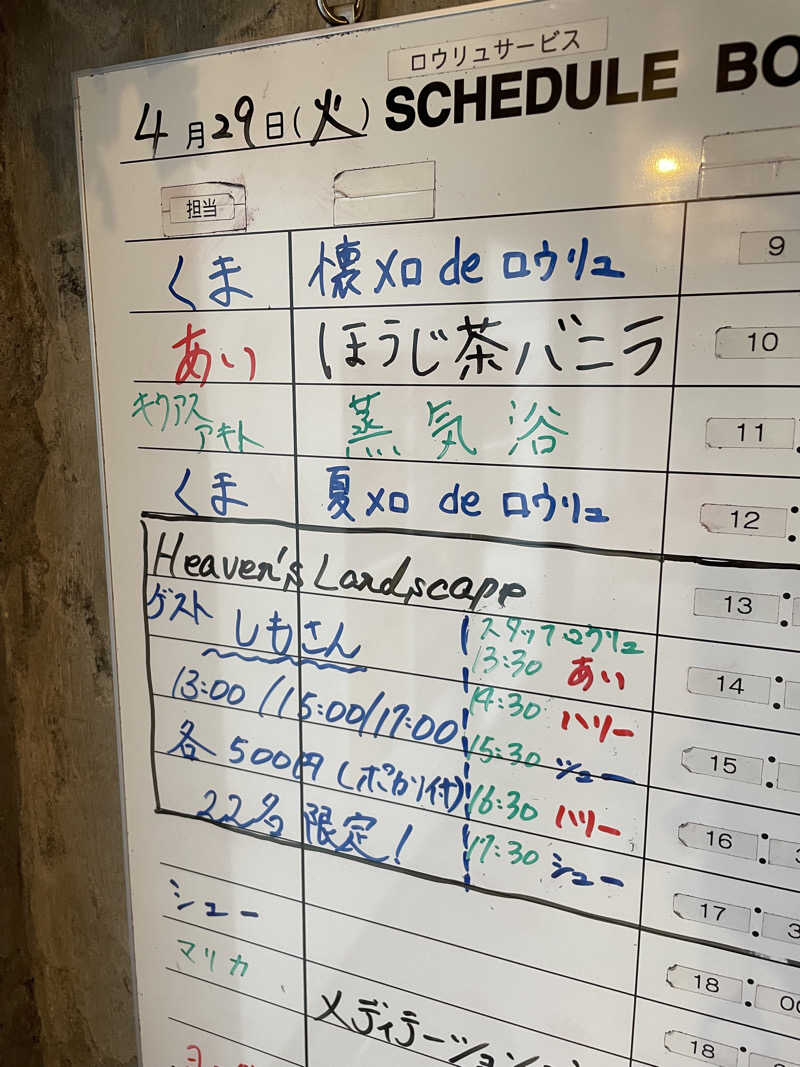 ロウリュサービス
4月29日(火) SCHEDULE BO
担当
くま 懐メロ de ロウリュ 9
あい ほうじ茶バニラ 10
キウアス
アキト 蒸気浴 11
くま 夏メロ de ロウリュ 12 :
Heaven's Landscape 13 :
ゲスト しもさん
スタッフロウリュ
13:30 あい 14 :
13:00/15:00/17:00
14:30 ハリー
各500円(ポカリ付)
15:30 シュー 15 :
22名限定!
16:30 ハリー 16 :
17:30 シュー 17 : 3
シュー 18 : 00
マリカ メディテーション 18 :